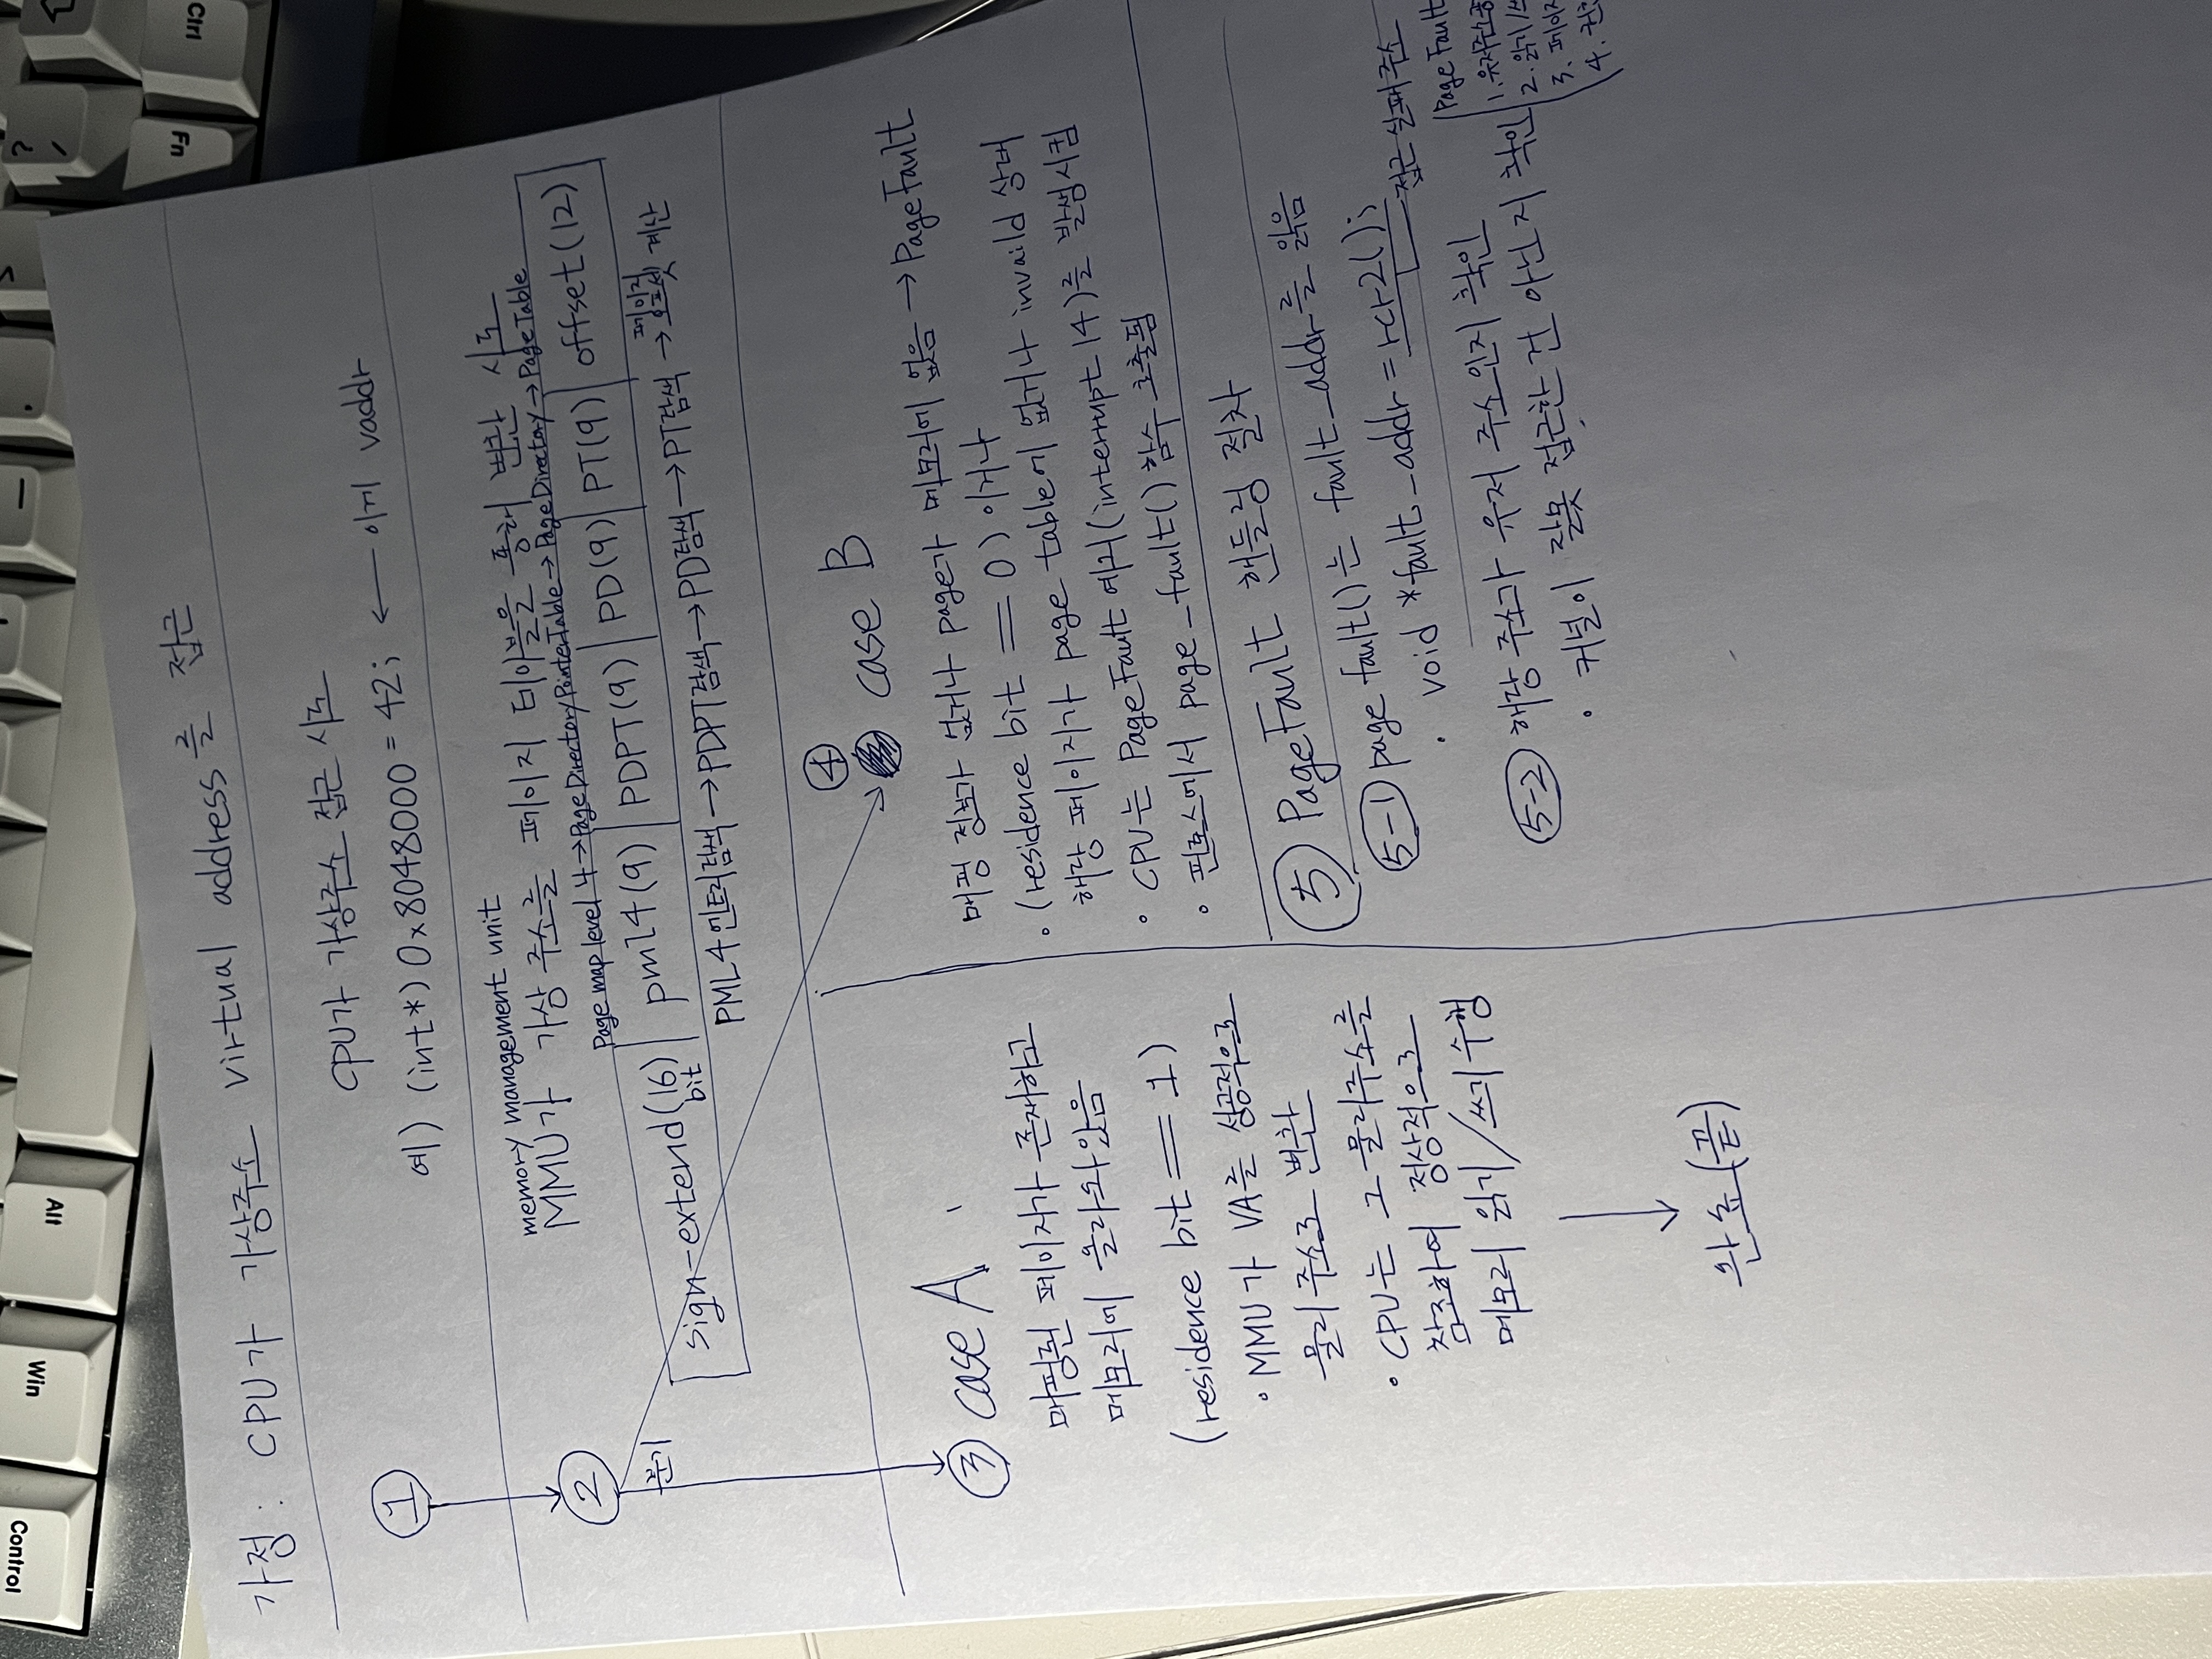 가정: CPU가 가상주소 virtual address를 접근
① CPU가 가상주소 접근 시도
예) (int*) 0x8048000 = 42; ← 이게 vaddr
memory management unit
② MMU가 가상 주소를 페이지 테이블을 통해 변환 시도
Page map level 4 → Page Directory Pointer Table → Page Directory → Page Table
sign-extend(16) bit | pml4(9) | PDPT(9) | PD(9) | PT(9) | offset(12)
PML4엔트리탐색 → PDPT탐색 → PD탐색 → PT탐색 → 페이지 오프셋 계산
분기
③ case A
매핑된 페이지가 존재하고
메모리에 올라와있음
(residence bit == 1)
• MMU가 VA를 성공적으로
물리 주소로 변환
• CPU는 그 물리주소를
참조하여 정상적으로
메모리 읽기/쓰기 수행
완료(끝)
④ case B
매핑 정보가 없거나 page가 메모리에 없음 → PageFault
• (residence bit == 0) 이거나
해당 페이지가 page table에 없거나 invaild 상태
• CPU는 PageFault 예외(interrupt 14)를 발생시킴
• 핀토스에서 page_fault() 함수 호출됨
⑤ PageFault 핸들링 절차
5-1 page fault()는 fault_addr를 읽음
• void *fault_addr = rcr2(); 접근 실패 주소
5-2 해당 주소가 유저 주소인지 확인
• 커널이 잘못 접근한 건 아닌지 확인
PageFault
1. 유저주소
2. 읽기/
3. 페이지
4.
Ctrl
?
/
Fn
.
Alt
Win
Control